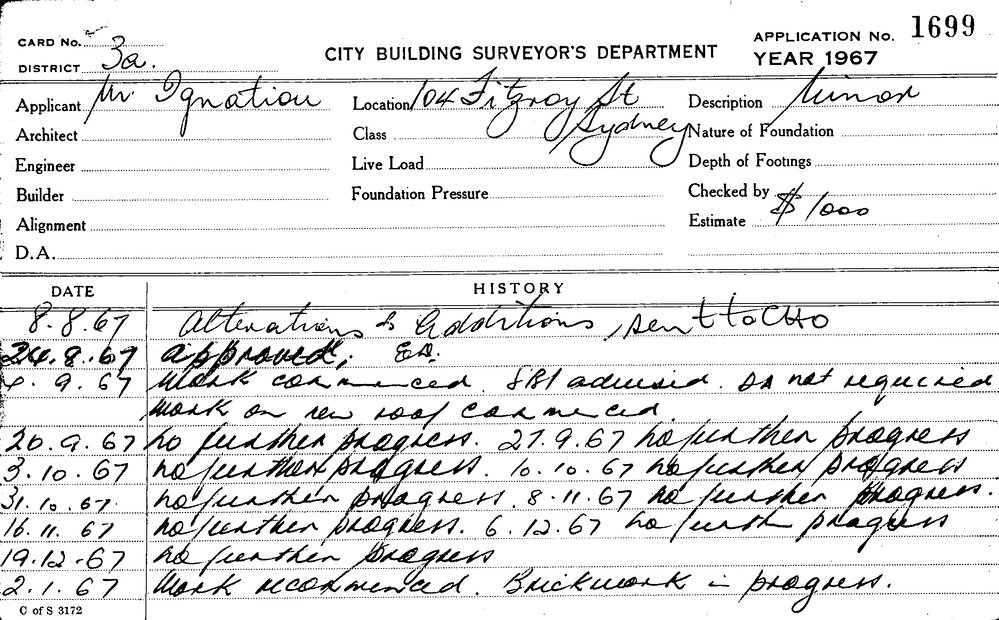 CARD No.
DISTRICT 3a.
CITY BUILDING SURVEYOR'S DEPARTMENT
APPLICATION No. 1699
YEAR 1967
Applicant Mr. Ignatiou Location 104 Fitzroy St Description Minor
Architect Class Sydney Nature of Foundation
Engineer Live Load Depth of Footings
Builder Foundation Pressure Checked by
Alignment Estimate $1000
D.A.
DATE HISTORY
8.8.67 Alterations & Additions, sent to CHO
24.8.67 approved;
4.9.67 Work commenced. SBI advised. DA not required
Work on new roof commenced.
20.9.67 no further progress. 27.9.67 no further progress
3.10.67 no further progress. 10.10.67 no further progress
31.10.67. no further progress. 8.11.67 no further progress.
16.11.67 no further progress. 6.12.67 no furth progress
19.12.67 no further progress
2.1.67 Work recommenced. Brickwork in progress.
C of S 3172